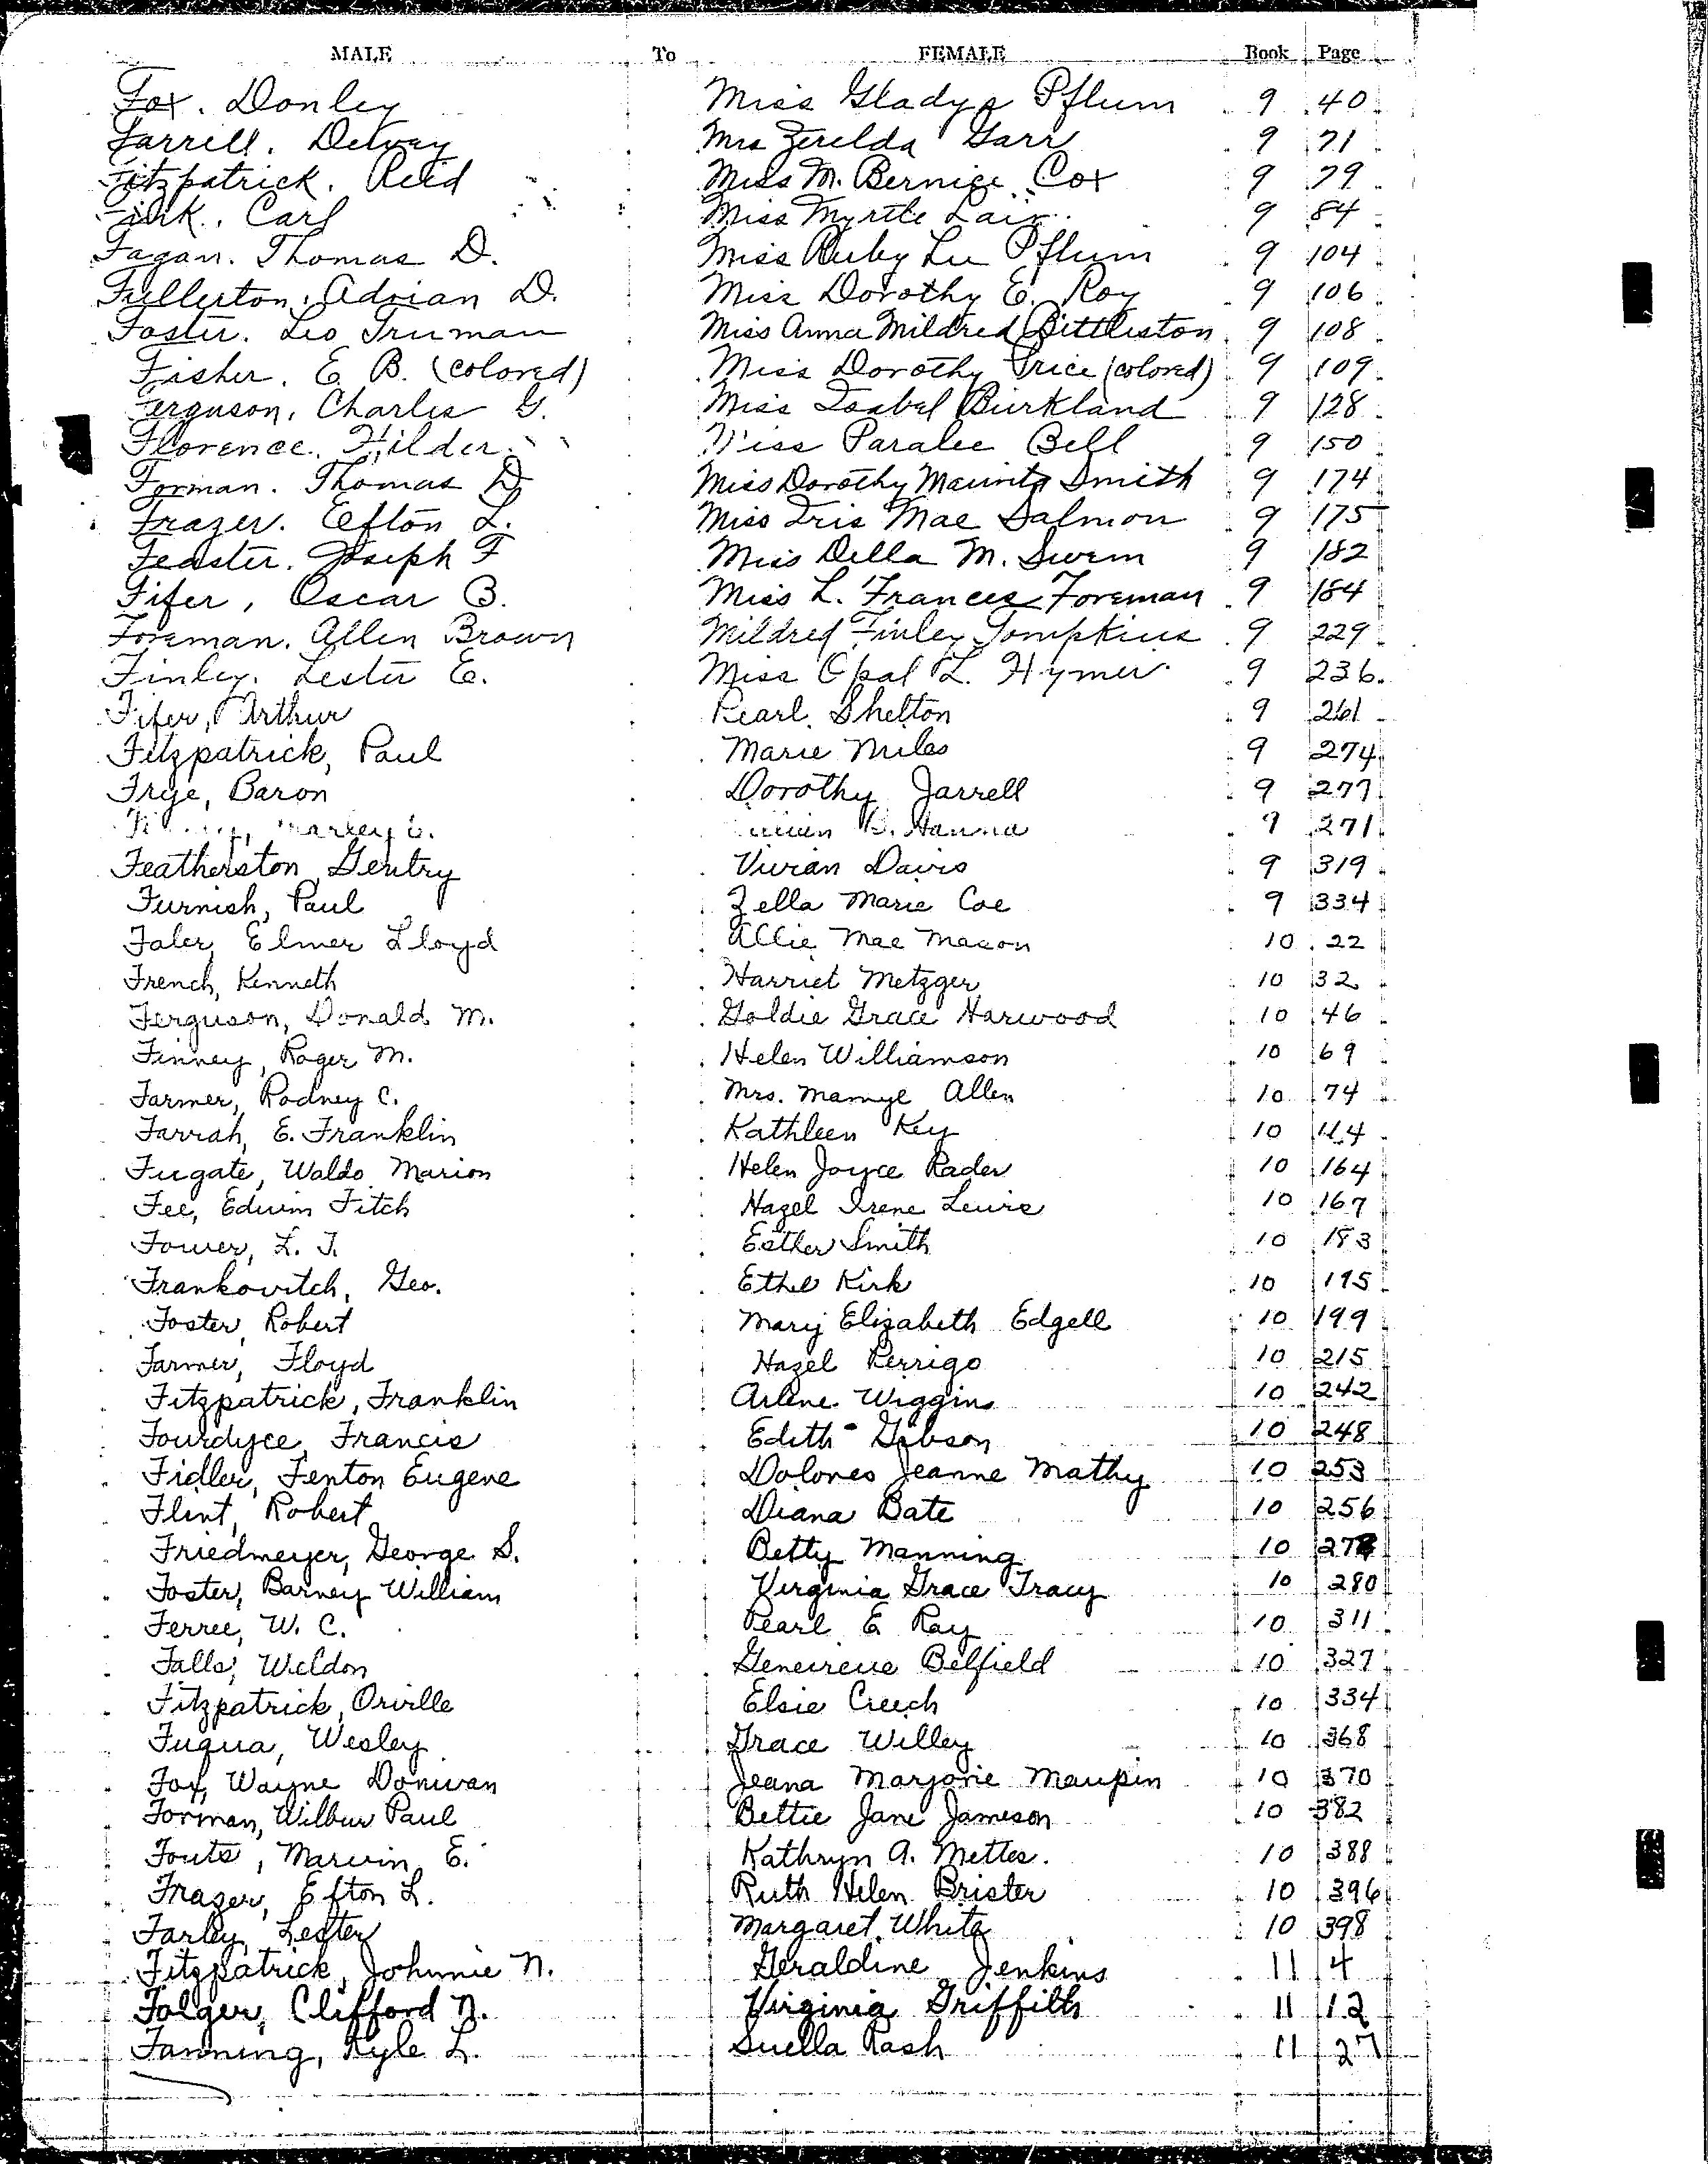 MALE To FEMALE Book Page
Fox. Donley Miss Gladys Pflum 9 40
Farrell. Delvay Mrs Zerelda Garr 9 71
Fitzpatrick. Reed Miss M. Bernice Cox 9 79
Fink. Carl Miss Myrtle Lair 9 84
Fagan. Thomas D. Miss Ruby Lee Pflum 9 104
Fullerton. Adrian D. Miss Dorothy E. Roy 9 106
Foster. Leo Truman Miss Anna Mildred Bittleston 9 108
Fisher. E. B. (colored) Miss Dorothy Price (colored) 9 109
Ferguson, Charles G. Miss Isabel Burkland 9 128
Florence. Hilder Miss Paralee Bell 9 150
Forman. Thomas D Miss Dorothy Maurita Smith 9 174
Frazer. Efton L. Miss Iris Mae Salmon 9 175
Feaster. Joseph F Miss Della M. Swem 9 182
Fifer, Oscar B. Miss L. Frances Foreman 9 184
Foreman. Allen Brown Mildred Finley Tompkins 9 229
Finley. Lester E. Miss Opal L. Hymer 9 236
Fifer, Arthur Pearl Shelton 9 261
Fitzpatrick, Paul Marie Miles 9 274
Frye, Baron Dorothy Jarrell 9 277
B. Hanna 9 271
Featherston, Gentry Vivian Davis 9 319
Furnish, Paul Zella Marie Coe 9 334
Faler, Elmer Lloyd Allie Mae Macon 10 22
French, Kenneth Harriet Metzger 10 32
Ferguson, Donald M. Goldie Grace Harwood 10 46
Finney, Roger M. Helen Williamson 10 69
Farmer, Rodney C. Mrs. Mamye Allen 10 74
Farrah, E. Franklin Kathleen Key 10
Fugate, Waldo Marion Helen Joyce Rader 10 164
Fee, Edwin Fitch Hazel Irene Lewis 10 167
Fower, L. J. Esther Smith 10 183
Frankovitch, Geo. Ethel Kirk 10 195
Foster, Robert Mary Elizabeth Edgell 10 199
Farmer, Floyd Hazel Perrigo 10 215
Fitzpatrick, Franklin Arlene Wiggins 10 242
Fourdyce, Francis Edith Gibson 10 248
Fidler, Fenton Eugene Dolores Jeanne Mathy 10 253
Flint, Robert Diana Bate 10 256
Friedmeyer, George S. Betty Manning 10
Foster, Barney William Virginia Grace Tracy 10 280
Ferree, W. C. Pearl E Ray 10 311
Falls, Weldon Genevieve Belfield 10 327
Fitzpatrick, Orville Elsie Creech 10 334
Fuqua, Wesley Grace Willey 10 368
Fox, Wayne Donivan Jeana Marjorie Maupin 10 370
Forman, Wilbur Paul Bettie Jane Jameson 10 382
Fouts, Marvin E. Kathryn A. Metter. 10 388
Frazer, Efton L. Ruth Helen Brister 10 396
Farley, Lester Margaret White 10 398
Fitzpatrick, Johnnie N. Geraldine Jenkins 11 4
Folger, Clifford N. Virginia Griffith 11 12
Fanning, Kyle L. Suella Rash 11 27